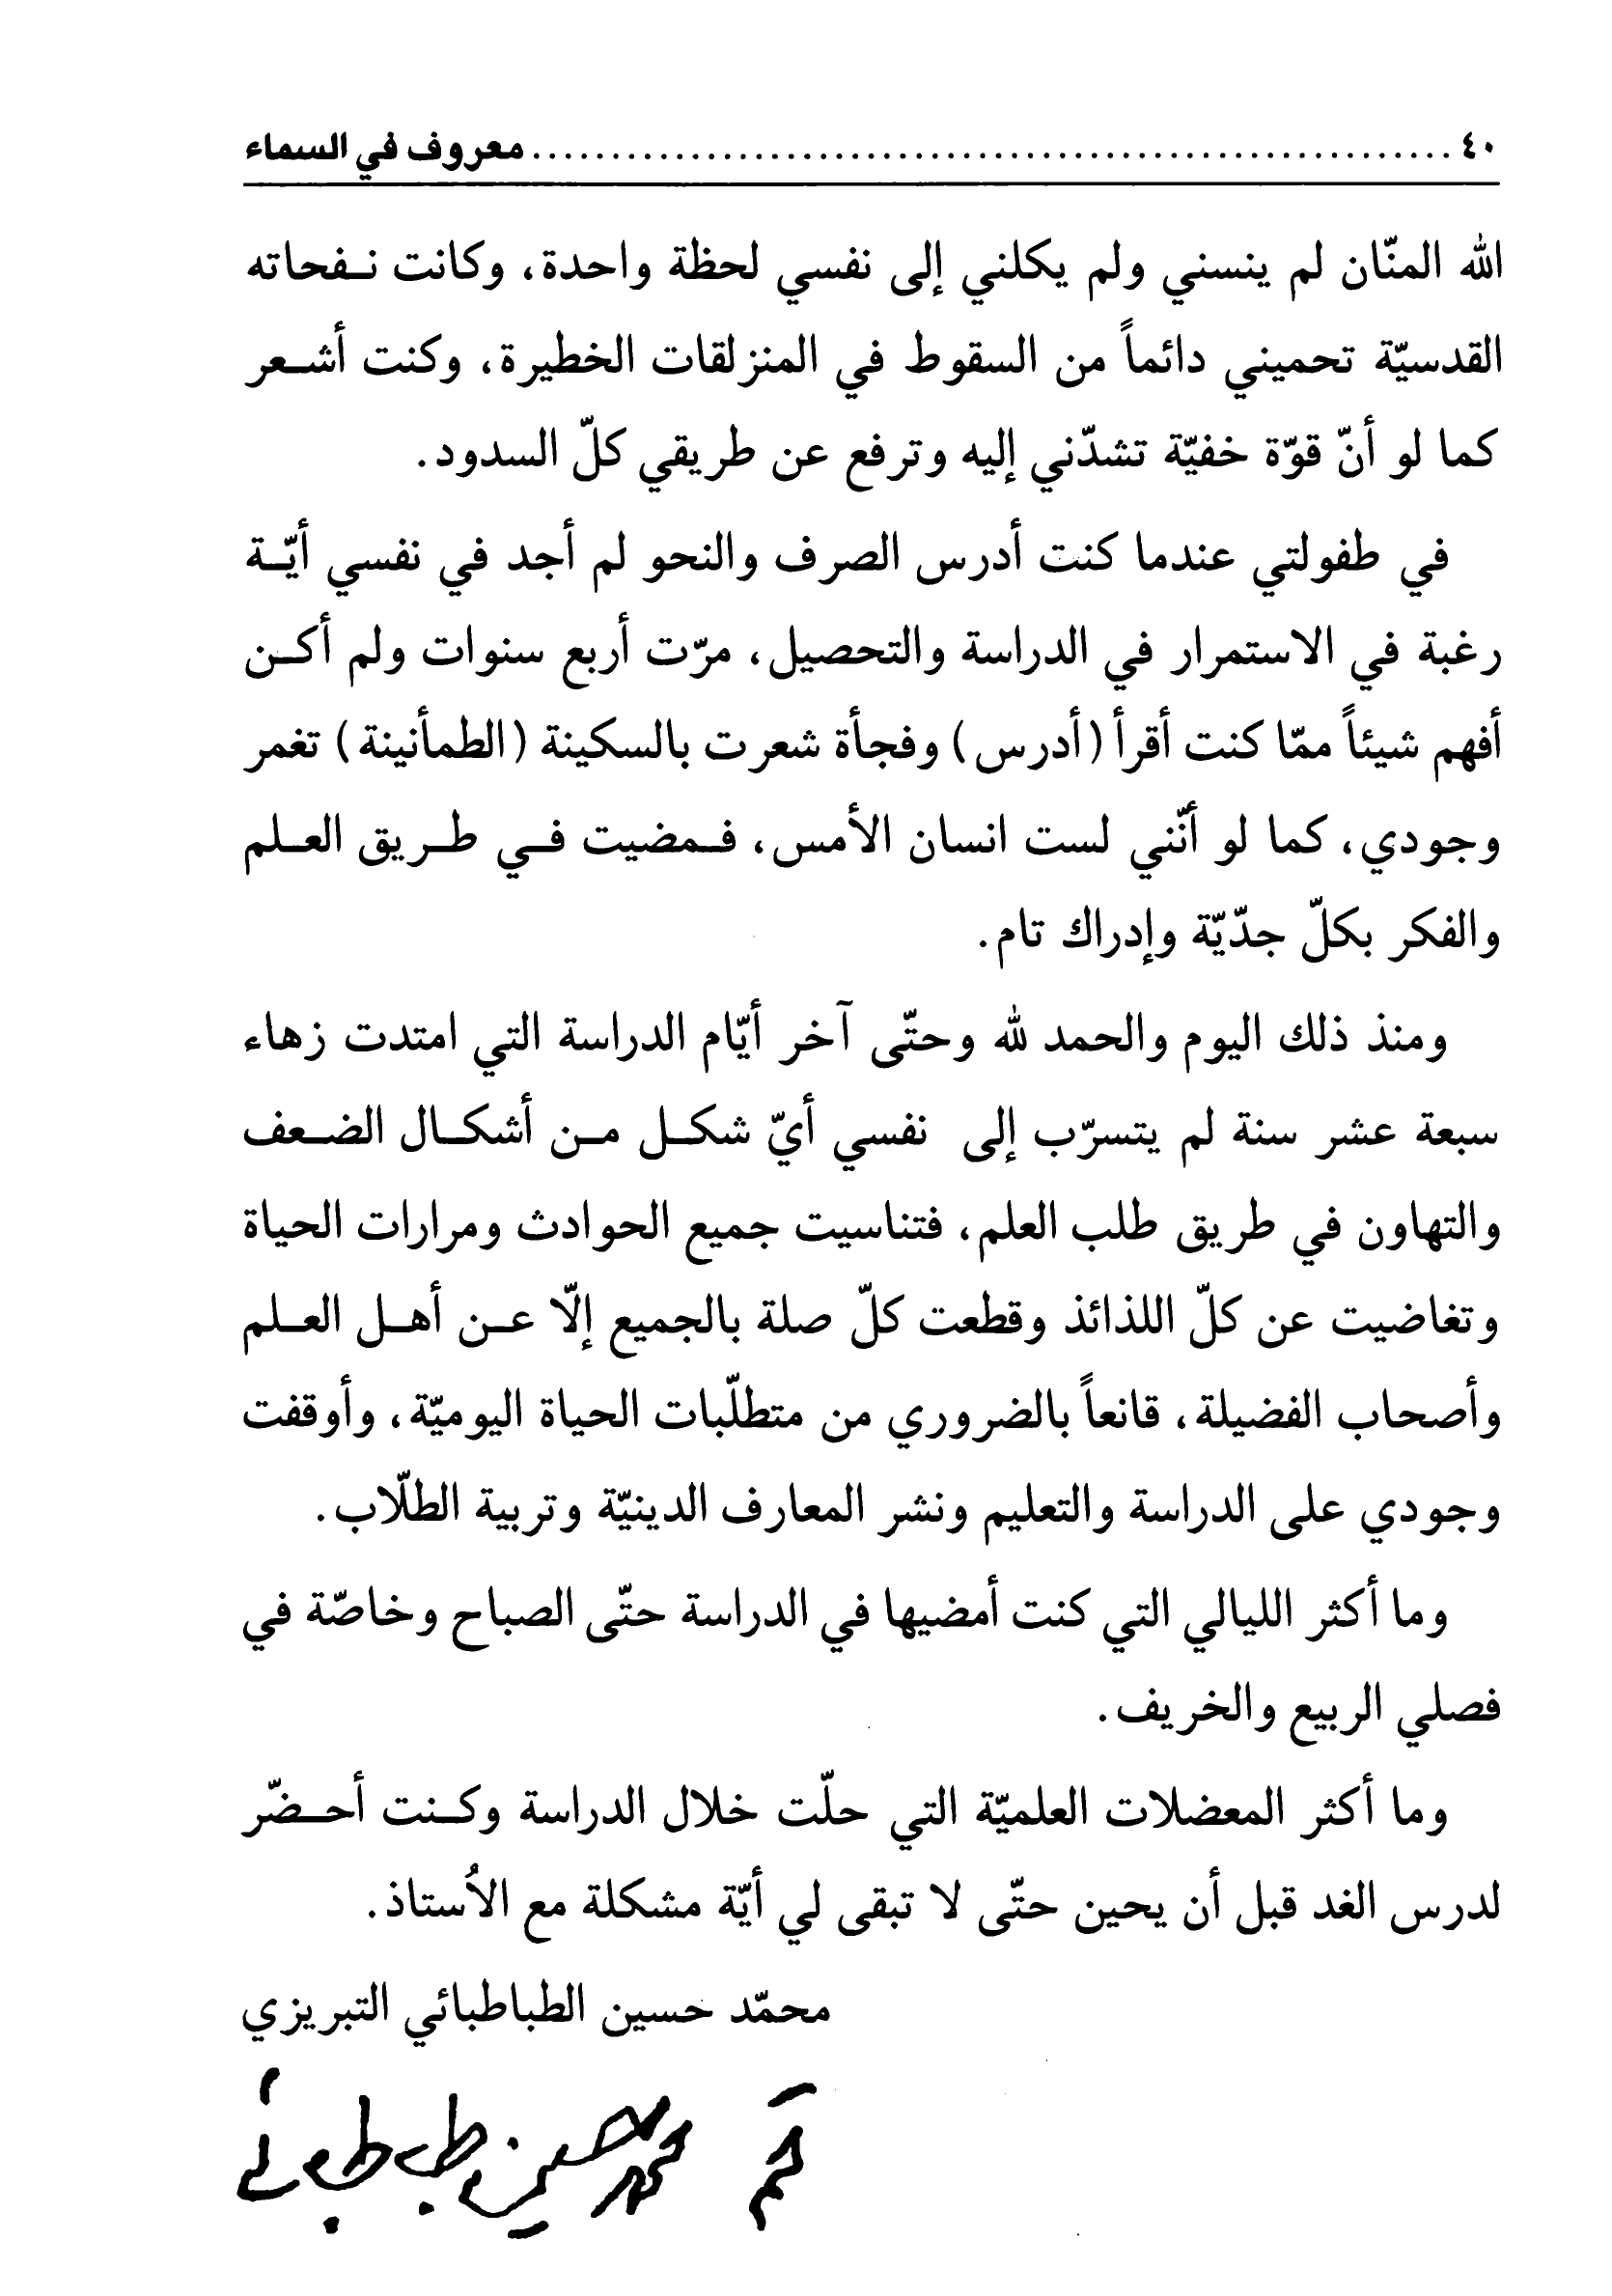 ٤٠ ........................................................ معروف في السماء
الله المنّان لم ينسني ولم يكلني إلى نفسي لحظة واحدة، وكانت نفحاته
القدسيّة تحميني دائماً من السقوط في المنزلقات الخطيرة، وكنت أشعر
كما لو أنّ قوّة خفيّة تشدّني إليه وترفع عن طريقي كلّ السدود.
في طفولتي عندما كنت أدرس الصرف والنحو لم أجد في نفسي أيّة
رغبة في الاستمرار في الدراسة والتحصيل، مرّت أربع سنوات ولم أكن
أفهم شيئاً ممّا كنت أقرأ (أدرس) وفجأة شعرت بالسكينة (الطمأنينة) تغمر
وجودي، كما لو أنّني لست انسان الأمس، فمضيت في طريق العلم
والفكر بكلّ جدّيّة وإدراك تام.
ومنذ ذلك اليوم والحمد لله وحتّى آخر أيّام الدراسة التي امتدت زهاء
سبعة عشر سنة لم يتسرّب إلى نفسي أيّ شكل من أشكال الضعف
والتهاون في طريق طلب العلم، فتناسيت جميع الحوادث ومرارات الحياة
وتغاضيت عن كلّ اللذائذ وقطعت كلّ صلة بالجميع إلّا عن أهل العلم
وأصحاب الفضيلة، قانعاً بالضروري من متطلّبات الحياة اليوميّة، وأوقفت
وجودي على الدراسة والتعليم ونشر المعارف الدينيّة وتربية الطلّاب.
وما أكثر الليالي التي كنت أمضيها في الدراسة حتّى الصباح وخاصّة في
فصلي الربيع والخريف.
وما أكثر المعضلات العلميّة التي حلّت خلال الدراسة وكنت أحضّر
لدرس الغد قبل أن يحين حتّى لا تبقى لي أيّة مشكلة مع الأُستاذ.
محمّد حسين الطباطبائي التبريزي
محمد حسين طباطبائی